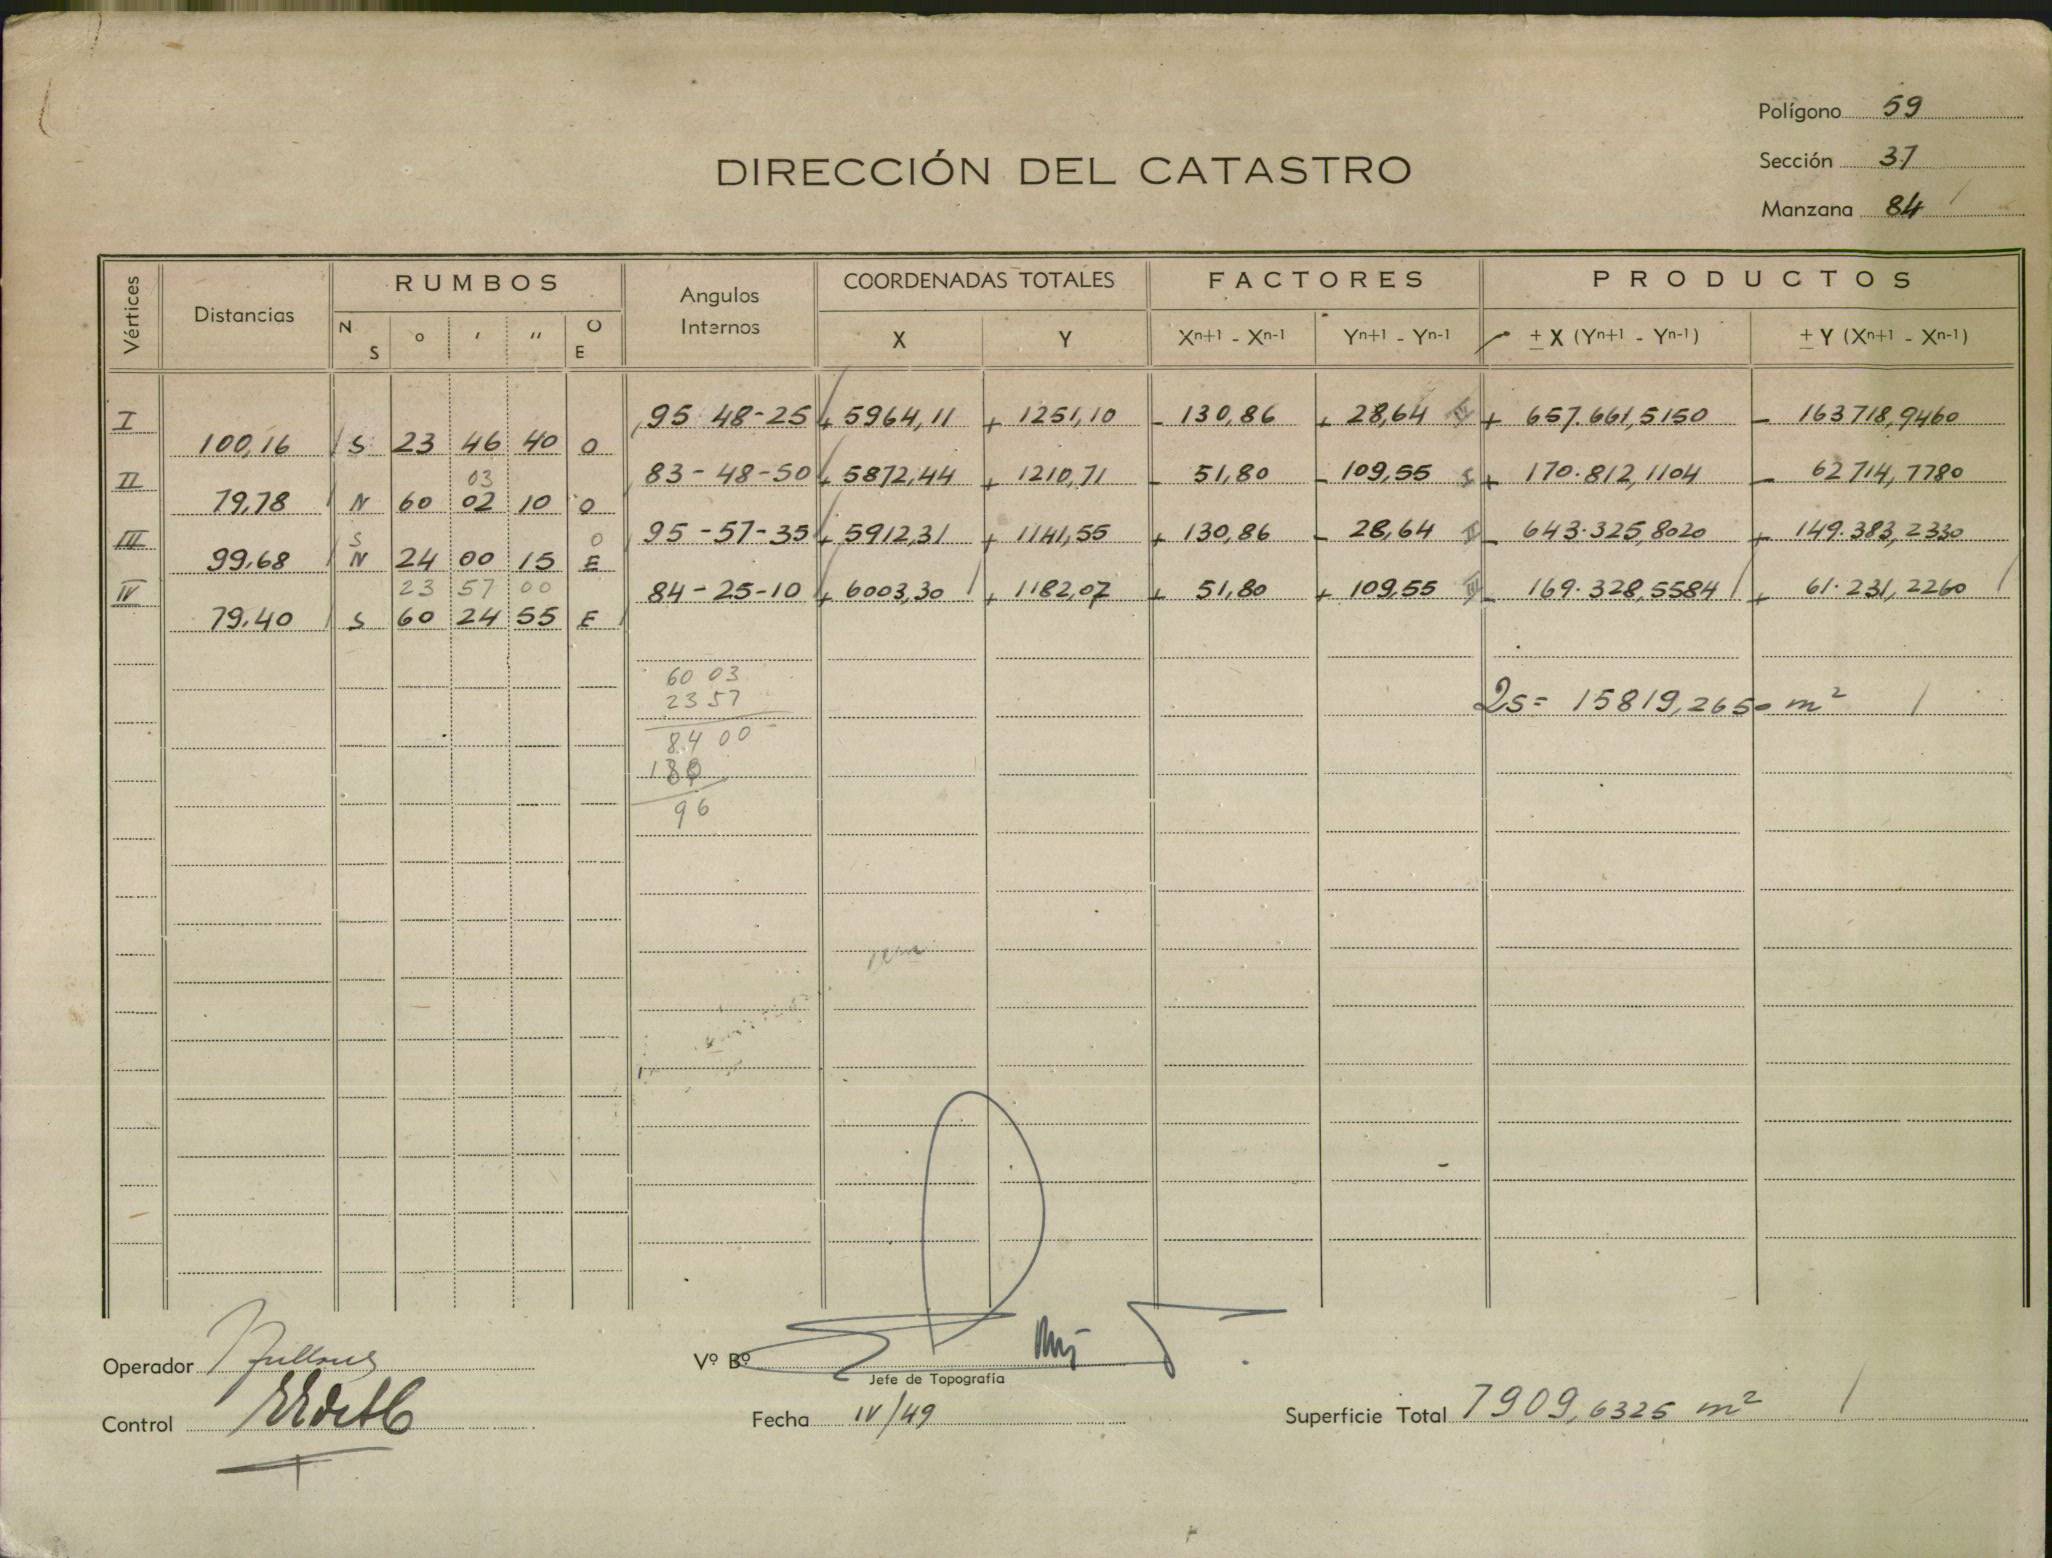 Polígono 59
Sección 37
DIRECCIÓN DEL CATASTRO
Manzana 84
Vértices Distancias RUMBOS Angulos Internos COORDENADAS TOTALES FACTORES PRODUCTOS
N S ° ′ ″ O E X Y Xn+1 - Xn-1 Yn+1 - Yn-1 ± X (Yn+1 - Yn-1) ± Y (Xn+1 - Xn-1)
I 95 48-25 + 5964,11 + 1251,10 - 130,86 + 28,64 IV + 657.661,5150 - 163718,9460
100,16 S 23 46 40 O
II 03 83-48-50 + 5872,44 + 1210,71 - 51,80 - 109,55 I + 170.812,1104 - 62714,7780
79,78 N 60 02 10 O
III S O 95-57-35 + 5912,31 + 1141,55 + 130,86 - 28,64 II - 643.325,8020 + 149.383,2330
99,68 N 24 00 15 E
IV 23 57 00 84-25-10 + 6003,30 + 1182,07 + 51,80 + 109,55 III - 169.328,5584 + 61.231,2260
79,40 S 60 24 55 E
60 03
23 57
84 00
180
96
2s= 15819,2650 m²
Operador
Vº Bº
Jefe de Topografía
Control
Fecha IV/49
Superficie Total 7909,6325 m²